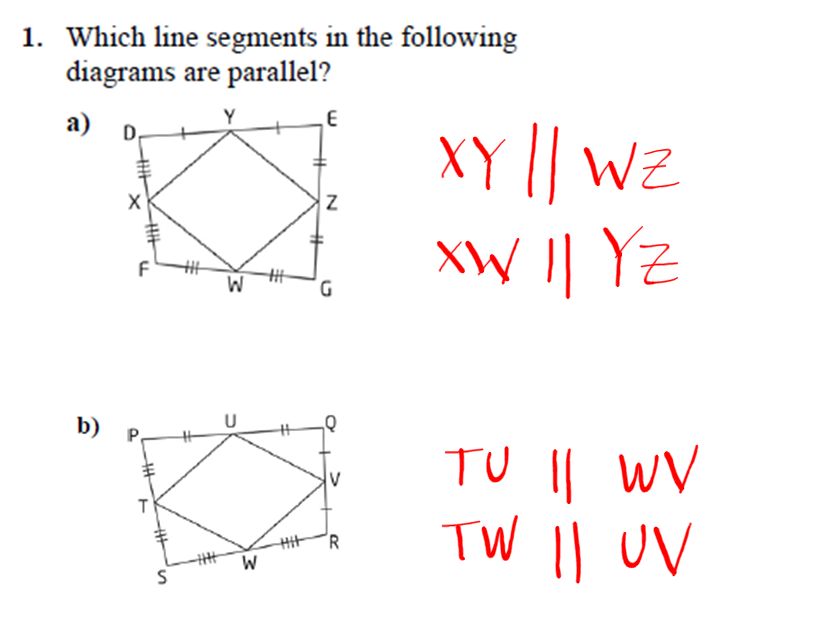 1. Which line segments in the following
diagrams are parallel?
a)
D Y E
XY || WZ
X Z
XW || YZ
F W G
b)
P U Q
TU || WV
T V
TW || UV
S W R